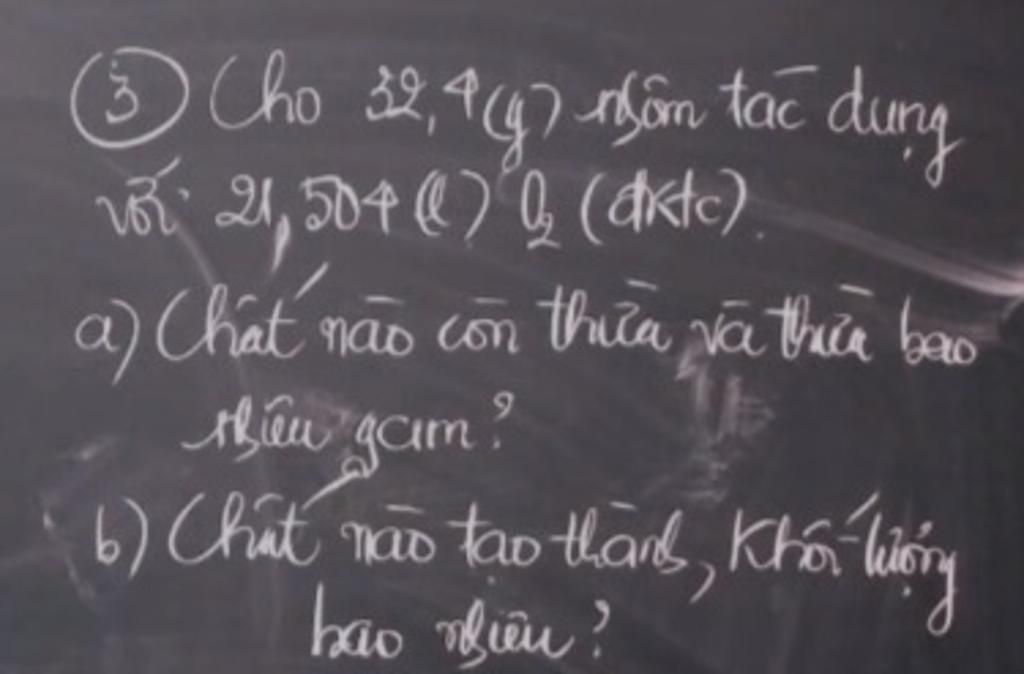 ③ Cho 32,4(g) nhôm tác dụng
với 21,504 (l) O₂ (đktc).
a) Chất nào còn thừa và thừa bao
nhiêu gam?
b) Chất nào tạo thành, khối lượng
bao nhiêu?